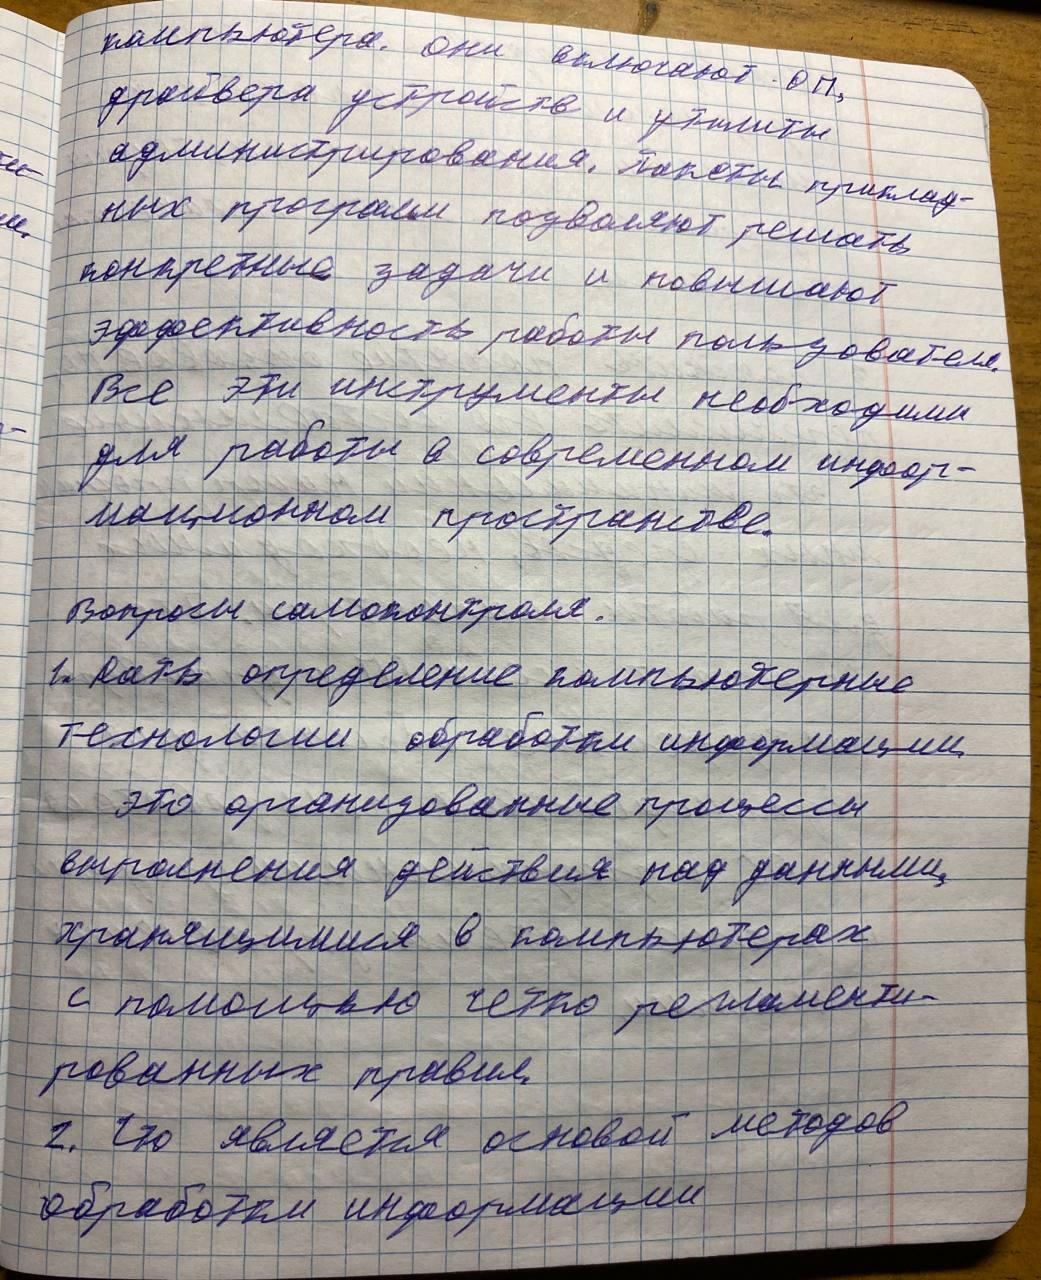 компьютера. они включают ОП,
драйвера устройств и утилиты
администрирования. Пакеты приклад-
ных программ позволяют решать
конкретные задачи и повышают
эффективность работы пользователя.
Все эти инструменты необходимы
для работы в современном инфор-
мационном пространстве.
Вопросы самоконтроля.
1. Дать определение компьютерные
технологии обработки информации
это организованные процессы
выполнения действия над данными,
хранящимися в компьютерах
с помощью четко регламенти-
рованных правил.
2. Что является основой методов
обработки информации